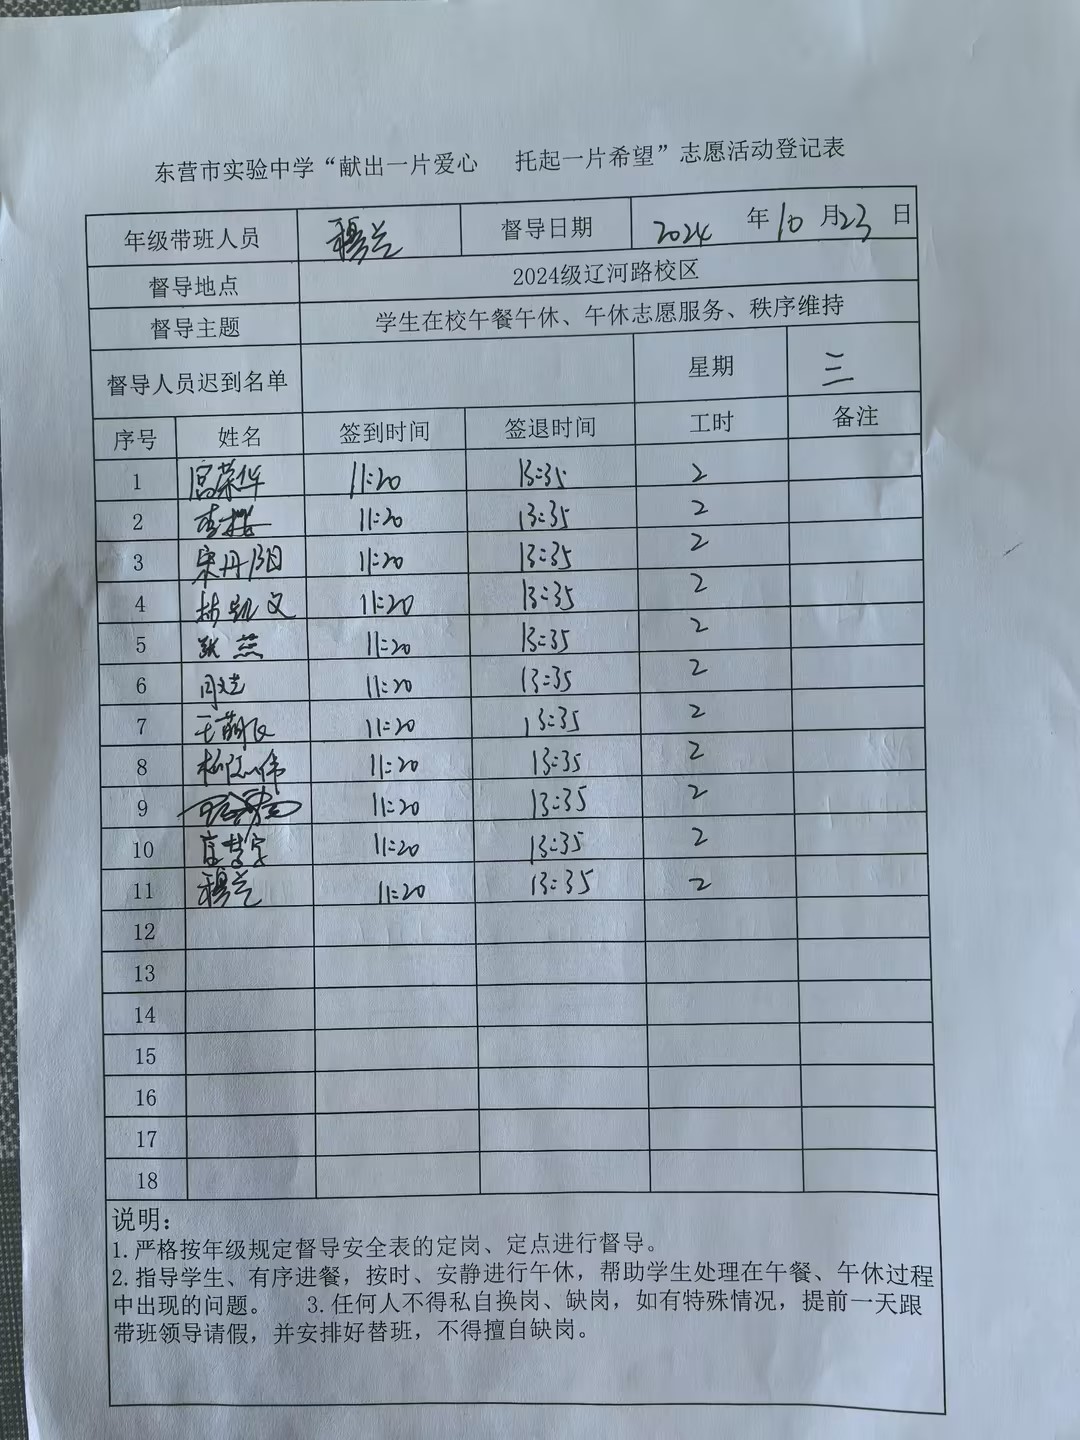 东营市实验中学“献出一片爱心 托起一片希望”志愿活动登记表
年级带班人员 穆兰 督导日期 2024 年 10 月 23 日
督导地点 2024级辽河路校区
督导主题 学生在校午餐午休、午休志愿服务、秩序维持
督导人员迟到名单 星期 三
序号 姓名 签到时间 签退时间 工时 备注
1 高荣华 11:20 13:35 2
2 11:20 13:35 2
3 宋丹阳 11:20 13:35 2
4 林凯文 11:20 13:35 2
5 张燕 11:20 13:35 2
6 11:20 13:35 2
7 王萌 11:20 13:35 2
8 11:20 13:35 2
9 11:20 13:35 2
10 11:20 13:35 2
11 穆兰 11:20 13:35 2
12
13
14
15
16
17
18
说明：
1.严格按年级规定督导安全表的定岗、定点进行督导。
2.指导学生、有序进餐，按时、安静进行午休，帮助学生处理在午餐、午休过程
中出现的问题。 3.任何人不得私自换岗、缺岗，如有特殊情况，提前一天跟
带班领导请假，并安排好替班，不得擅自缺岗。